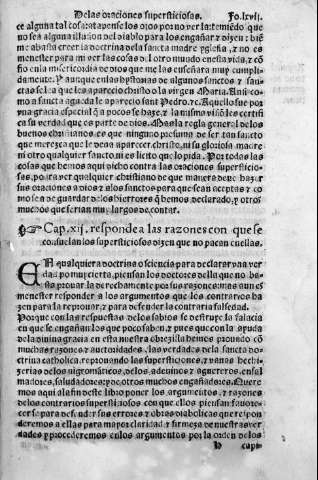 De las oraciones supersticiosas. Fo.lxvij.
ce alguna tal cosa tapense los ojos por no ver la temiẽdo que
no sea alguna illusion del diablo para los engañar y dizen: biẽ
me abasta creer la doctrina dela sancta madre yglesia, y no es
menester para mi ver las cosas del otro mundo en esta vida, ca cõ
fio en la misericordia de dios que me las enseñara muy cumpli
damente. Y aunque enlas hystorias de algunos sanctos y san
ctas se lea que les aparescio christo o la virgen Maria. Assi co
mo a sancta agueda le aparecio sant Pedro. rc. Aquello fue por
vna gracia especial q̃ a pocos se haze, y la misma visiõ les certifi
ca su verdad que es parte de dios. Mas la regla general de los
buenos christianos es que ninguno presuma de ser tan sancto
que merezca que le deua aparescer christo, ni su gloriosa madre
ni otro qualquier sancto, ni es licito que lo pida. Por todas las
cosas que hemos aqui dicho contra las oraciones supersticio-
sas, podra ver qualquier christiano de que manera deue hazer
sus oraciones a dios y a los sanctos para que sean aceptas y co
mo se an de guardar delos hierros q̃ hemos declarado, y otros
muchos que serian muy largos de contar.
Cap. xij. responde a las razones con que se
consuelan los supersticiosos dizen que no pacan en ellas.
EN qualquiera doctrina o sciencia para declarar vna ver
dad por muy cierta, piensan los doctores della que no ba-
sta prouar la derechamente por sus razones: mas aun es
menester responder a los argumentos que los contrarios ha
zen para la reprouar, y para defender la contraria falsedad.
Porque con las respuestas delos sabios se destruye la falacia
en que se engañan los que poco saben, y pues que con la ayuda
dela diuina gracia en esta nuestra obrezilla hemos prouado cõ
muchas razones y auctoridades, las verdades dela sancta do-
ctrina catholica, reprouando las supersticiones, y vanas hechi-
zerias delos nigromãticos, delos adeuinos y agoreros, ensal
madores, saludadores: y de otros muchos engañadores. Quere
mos aqui al a fin deste libro poner los argumentos, y razones
delos contrarios supersticiosos con que ellos piensan fauore-
cerse para defender sus errores y obras diabolicas que respon
deremos a ellas para mayor claridad y firmeza de nuestras ver
dades y procederemos en los argumentos por la orden de los
capi-